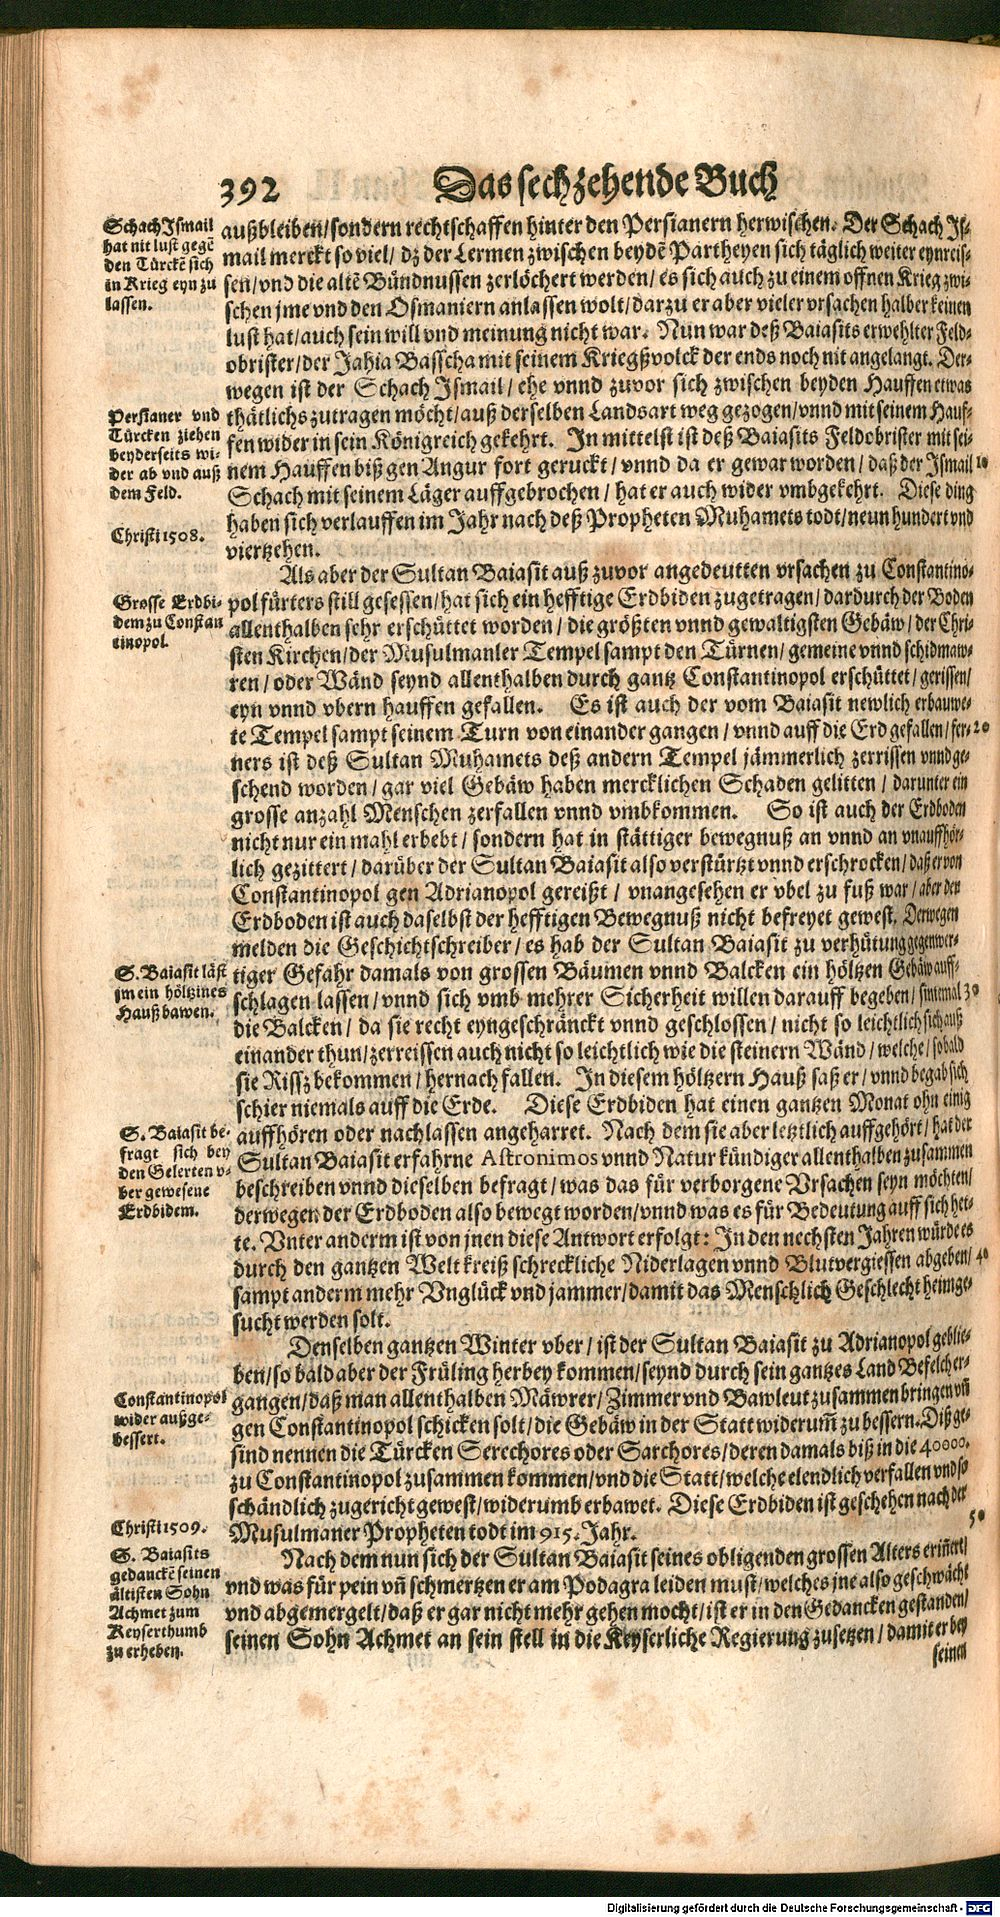 392 Das sechzehende Buch
Schach Ismail
hat nit lust gegē
den Türckē sich
in Krieg eyn zu
lassen.
außbleiben/sondern rechtschaffen hinter den Persianern herwischen. Der Schach Is-
mail merckt so viel/ dz der Lermen zwischen beydē Partheyen sich täglich weiter eynreis-
sen/vnd die altē Bündnussen zerlöchert werden/es sich auch zu einem offnen Krieg zwi-
schen jme vnd den Osmaniern anlassen wolt/darzu er aber vieler vrsachen halber keinen
lust hat/auch sein will vnd meinung nicht war. Nun war deß Baiasits erwehlter Feld-
obrister/der Jahia Basscha mit seinem Kriegßvolck der ends noch nit angelangt. Der-
wegen ist der Schach Ismail/ ehe vnnd zuvor sich zwischen beyden Hauffen etwas
Persianer vnd
Türcken ziehen
beyderseits wi-
der ab vnd auß
dem Feld.
thätlichs zutragen möcht/auß derselben Landsart weg gezogen/vnnd mit seinem Hauf-
fen wider in sein Königreich gekehrt. In mittelst ist deß Baiasits Feldobrister mit sei-
nem Hauffen biß gen Angur fort geruckt/ vnnd da er gewar worden/ daß der Ismail 10
Schach mit seinem Läger auffgebrochen/ hat er auch wider vmbgekehrt. Diese ding
Christi 1508.
haben sich verlauffen im Jahr nach deß Propheten Muhamets todt/neun hundert vnd
viertzehen.
Als aber der Sultan Baiasit auß zuvor angedeutten vrsachen zu Constantino-
Grosse Erdbi-
dem zu Constan
tinopol.
pol fürters still gesessen/hat sich ein hefftige Erdbiden zugetragen/dardurch der Boden
allenthalben sehr erschüttet worden/ die größten vnnd gewaltigsten Gebäw/ der Chri-
sten Kirchen/der Musulmanler Tempel sampt den Türnen/ gemeine vnnd schidmaw-
ren/ oder Wänd seynd allenthalben durch gantz Constantinopol erschüttet/ gerissen/
eyn vnnd vbern hauffen gefallen. Es ist auch der vom Baiasit newlich erbauwe-
te Tempel sampt seinem Turn von einander gangen/ vnnd auff die Erd gefallen/fer- 20
ners ist deß Sultan Muhamets deß andern Tempel jämmerlich zerrissen vnnd ge-
schend worden/ gar viel Gebäw haben mercklichen Schaden gelitten/ darunter ein
grosse anzahl Menschen zerfallen vnnd vmbkommen. So ist auch der Erdboden
nicht nur ein mahl erbebt/ sondern hat in stättiger bewegnuß an vnnd an vnauffhör-
lich gezittert/ darüber der Sultan Baiasit also verstürtzt vnnd erschrocken/ daß er von
Constantinopol gen Adrianopol gereißt/ vnangesehen er vbel zu fuß war/ aber der
Erdboden ist auch daselbst der hefftigen Bewegnuß nicht befreyet gewest. Derwegen
melden die Geschichtschreiber/ es hab der Sultan Baiasit zu verhütung gegenwer-
S. Baiasit läst
jm ein höltzines
Hauß bawen.
tiger Gefahr damals von grossen Bäumen vnnd Balcken ein höltzen Gebäw auff-
schlagen lassen/ vnnd sich vmb mehrer Sicherheit willen darauff begeben/ sintemal 30
die Balcken/ da sie recht eyngeschränckt vnnd geschlossen/ nicht so leichtlich sich auß
einander thun/zerreissen auch nicht so leichtlich wie die steinern Wänd/ welche/ sobald
sie Rissz bekommen/ hernach fallen. In diesem höltzern Hauß saß er/ vnnd begab sich
schier niemals auff die Erde. Diese Erdbiden hat einen gantzen Monat ohn einig
S. Baiasit be-
fragt sich bey
den Gelerten v-
ber gewesene
Erdbidem.
auffhören oder nachlassen angeharret. Nach dem sie aber letztlich auffgehört/ hat der
Sultan Baiasit erfahrne Astronimos vnnd Naturkündiger allenthalben zusammen
beschreiben vnnd dieselben befragt/ was das für verborgene Vrsachen seyn möchten/
derwegen der Erdboden also bewegt worden/vnnd was es für Bedeutung auff sich het-
te. Vnter anderm ist von jnen diese Antwort erfolgt: In den nechsten Jahren würde es
durch den gantzen Weltkreiß schreckliche Niderlagen vnnd Blutvergiessen abgeben/ 40
sampt anderm mehr Vnglück vnd jammer/damit das Menschlich Geschlecht heimge-
sucht werden solt.
Denselben gantzen Winter vber/ ist der Sultan Baiasit zu Adrianopol geblie-
ben/so bald aber der Früling herbey kommen/seynd durch sein gantzes Land Befelch er-
Constantinopol
wider außge-
bessert.
gangen/daß man allenthalben Mäwrer/ Zimmer vnd Bawleut zusammen bringen vñ
gen Constantinopol schicken solt/die Gebäw in der Statt widerum̄ zu bessern. Diß ge-
sind nennen die Türcken Serechores oder Sarchores/deren damals biß in die 40000.
zu Constantinopol zusammen kommen/vnd die Statt/welche elendlich verfallen vnd so
schändlich zugericht gewest/widerumb erbawet. Diese Erdbiden ist geschehen nach der 50
Christi 1509.
Musulmaner Propheten todt im 915. Jahr.
S. Baiasits
gedanckē seinen
ältisten Sohn
Achmet zum
Keyserthumb
zu erheben.
Nach dem nun sich der Sultan Baiasit seines obligenden grossen Alters eriñert/
vnd was für pein vñ schmertzen er am Podagra leiden must/welches jne also geschwächt
vnd abgemergelt/daß er gar nicht mehr gehen mocht/ist er in den Gedancken gestanden/
seinen Sohn Achmet an sein stell in die Keyserliche Regierung zusetzen/ damit er bey
seinen
Digitalisierung gefördert durch die Deutsche Forschungsgemeinschaft - DFG